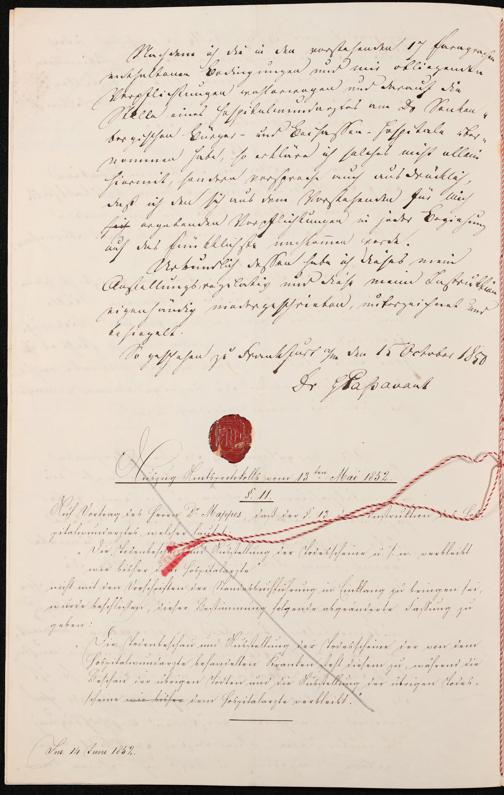 Nachdem ich die in den vorstehenden 17 Paragraphen
enthaltenen Bedingungen und mir obliegenden
Verpflichtungen wahrgenommen und darauf die
Stelle eines Hospitalwundarztes am Dr Senken-
bergischen Bürger- und Beisassen-Hospitale über-
nommen habe, so erkläre ich solches nicht allein
hiermit, sondern verspreche auch ausdrücklich,
daß ich den sich aus dem Vorstehenden für mich
ergebenden Verpflichtungen in jeder Beziehung
auf das Pünktlichste nachkommen werde.
Urkundlich dessen habe ich dieses mein
Anstellungs und diese meine Instruktion
eigenhändig niedergeschrieben, unterzeichnet und
besiegelt.
So geschehen zu Frankfurt a/m den 15 October 1850
Dr G Passavant
Auszug Amtsprotokolls vom 13ten Mai 1852
§. 11.
Auf Vortrag des Herrn Dr Mappes, daß der § 13 der Instruktion des Hos-
pitalwundarztes welcher lautet:
„Die Todtenbeschau und Ausstellung der Todesscheine u. s. w. verbleibt
wie bisher dem Hospitalarzte“
nicht mit den Vorschriften der Standesbuchführung in Einklang zu bringen sei,
wurde beschlossen, dieser Bestimmung folgende abgeänderte Fassung zu
geben:
„Die Todtenbeschau und Ausstellung der Todesscheine der von dem
Hospitalwundarzte behandelten Kranken steht diesem zu, während die
Beschau der übrigen Todten und die Ausstellung der übrigen Todes-
scheine wie bisher dem Hospitalarzte verbleibt.“
Fm. 14 Juni 1852.